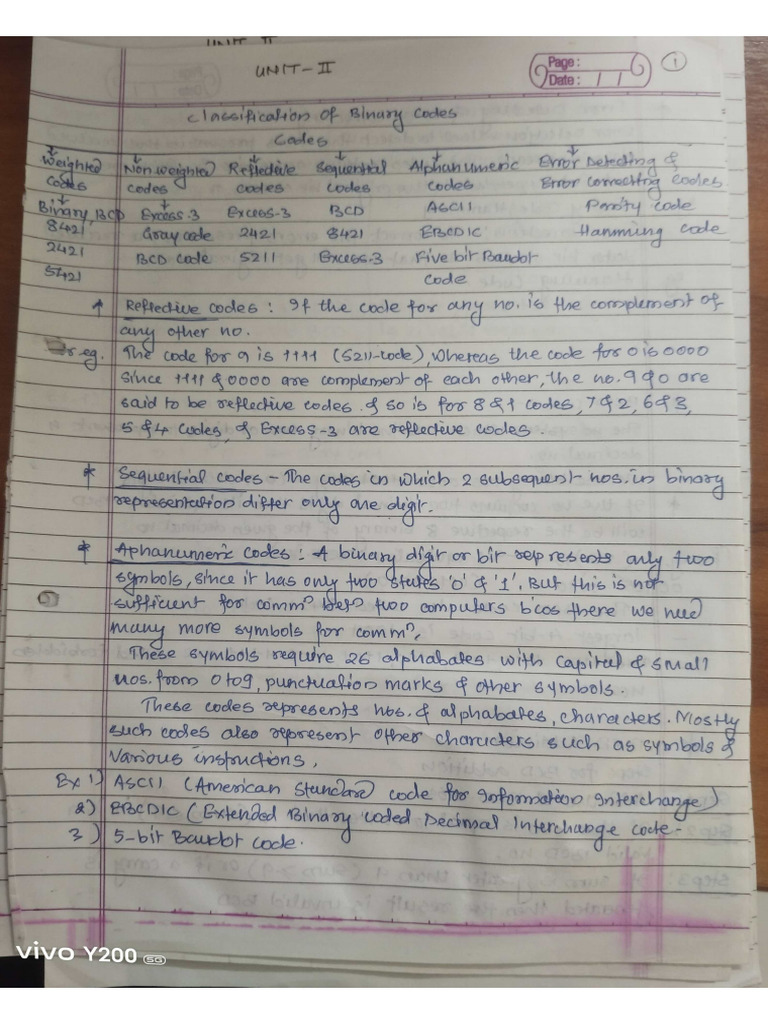 UNIT II
UNIT-II
Page: 1
Date: / /
Classification of Binary Codes
Codes
Weighted Codes
Non weighted codes
Reflective codes
Sequential codes
Alphanumeric codes
Error Detecting & Error correcting codes
Binary, BCD Excess-3 Excess-3 BCD ASCII Parity code
8421 Gray code 2421 8421 EBCDIC Hamming code
2421 BCD code 5211 Excess-3 Five bit Baudot
5421 code
* Reflective codes: If the code for any no. is the complement of
any other no.
eg. The code for 9 is 1111 (5211-code), whereas the code for 0 is 0000
since 1111 & 0000 are complement of each other, the no. 9 & 0 are
said to be reflective codes. & so is for 8 & 1 codes, 7 & 2, 6 & 3,
5 & 4 codes, & Excess-3 are reflective codes.
* Sequential codes - The codes in which 2 subsequent nos. in binary
representation differ only one digit.
* Aphanumeric codes: A binary digit or bit represents only two
symbols, since it has only two states '0' & '1'. But this is not
sufficient for commn betn two computers b'cos there we need
many more symbols for commn.
These symbols require 26 alphabates with capital & small
nos. from 0 to 9, punctuation marks & other symbols.
These codes represents nos. & alphabates, characters. Mostly
such codes also represent other characters such as symbols &
various instructions.
Ex 1) ASCII (American Standard code for Information Interchange)
2) EBCDIC (Extended Binary coded Decimal Interchange code-
3) 5-bit Baudot code.
vivo Y200 5G